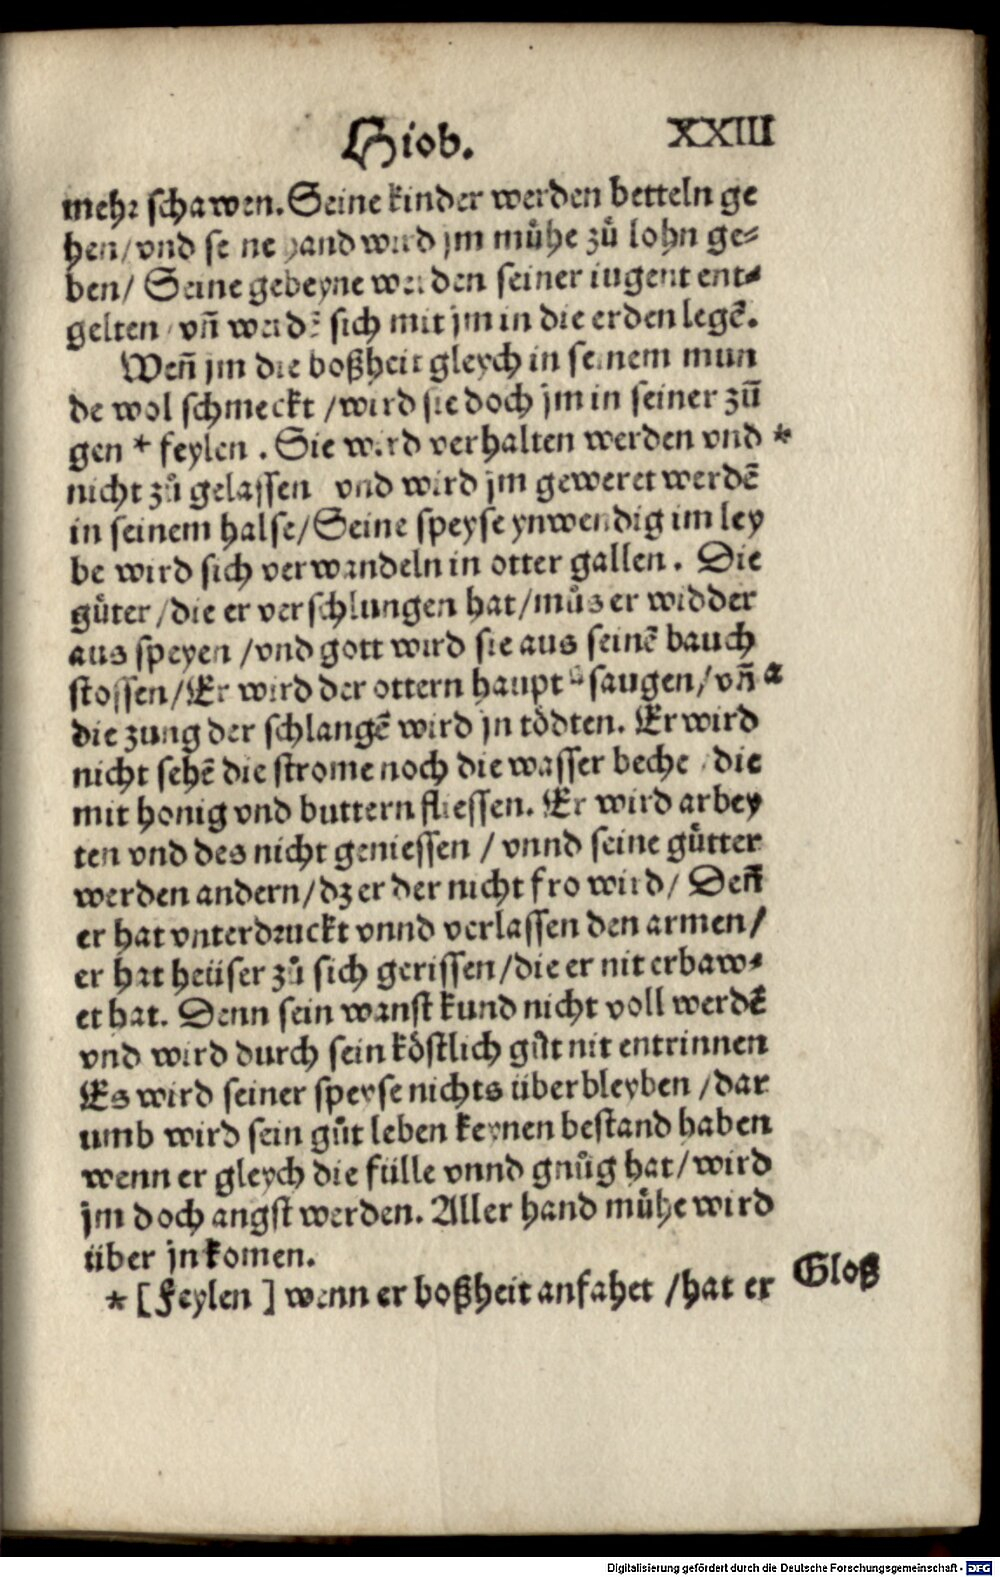 Hiob. XXIII
mehr schawen. Seine kinder werden betteln ge
hen/ vnd seine hand wird jm mühe zů lohn ge-
ben/ Seine gebeyne werden seiner iugent ent-
gelten/ vñ werdē sich mit jm in die erden legē.
Weñ jm die boßheit gleych in seinem mun
de wol schmeckt /wird sie doch jm in seiner zū
gen * feylen . Sie wird verhalten werden vnd *
nicht zů gelassen vnd wird jm geweret werdē
in seinem halse/ Seine speyse ynwendig im ley
be wird sich verwandeln in otter gallen. Die
gůter /die er verschlungen hat/ můs er widder
aus speyen /vnd gott wird sie aus seinē bauch
stossen/ Er wird der ottern haupt a saugen/ vñ a
die zung der schlangē wird jn tödten. Er wird
nicht sehē die strome noch die wasser beche /die
mit honig vnd buttern fliessen. Er wird arbey
ten vnd des nicht geniessen / vnnd seine gůtter
werden andern/ dz er der nicht fro wird/ Deñ
er hat vnterdruckt vnnd verlassen den armen/
er hat heüser zů sich gerissen /die er nit erbaw-
et hat. Denn sein wanst kund nicht voll werdē
vnd wird durch sein köstlich gůt nit entrinnen
Es wird seiner speyse nichts überbleyben /dar
umb wird sein gůt leben keynen bestand haben
wenn er gleych die fülle vnnd gnůg hat/ wird
jm doch angst werden. Aller hand mühe wird
über jn komen.
* [Feylen] wenn er boßheit anfahet /hat er Gloß
Digitalisierung gefördert durch die Deutsche Forschungsgemeinschaft - DFG